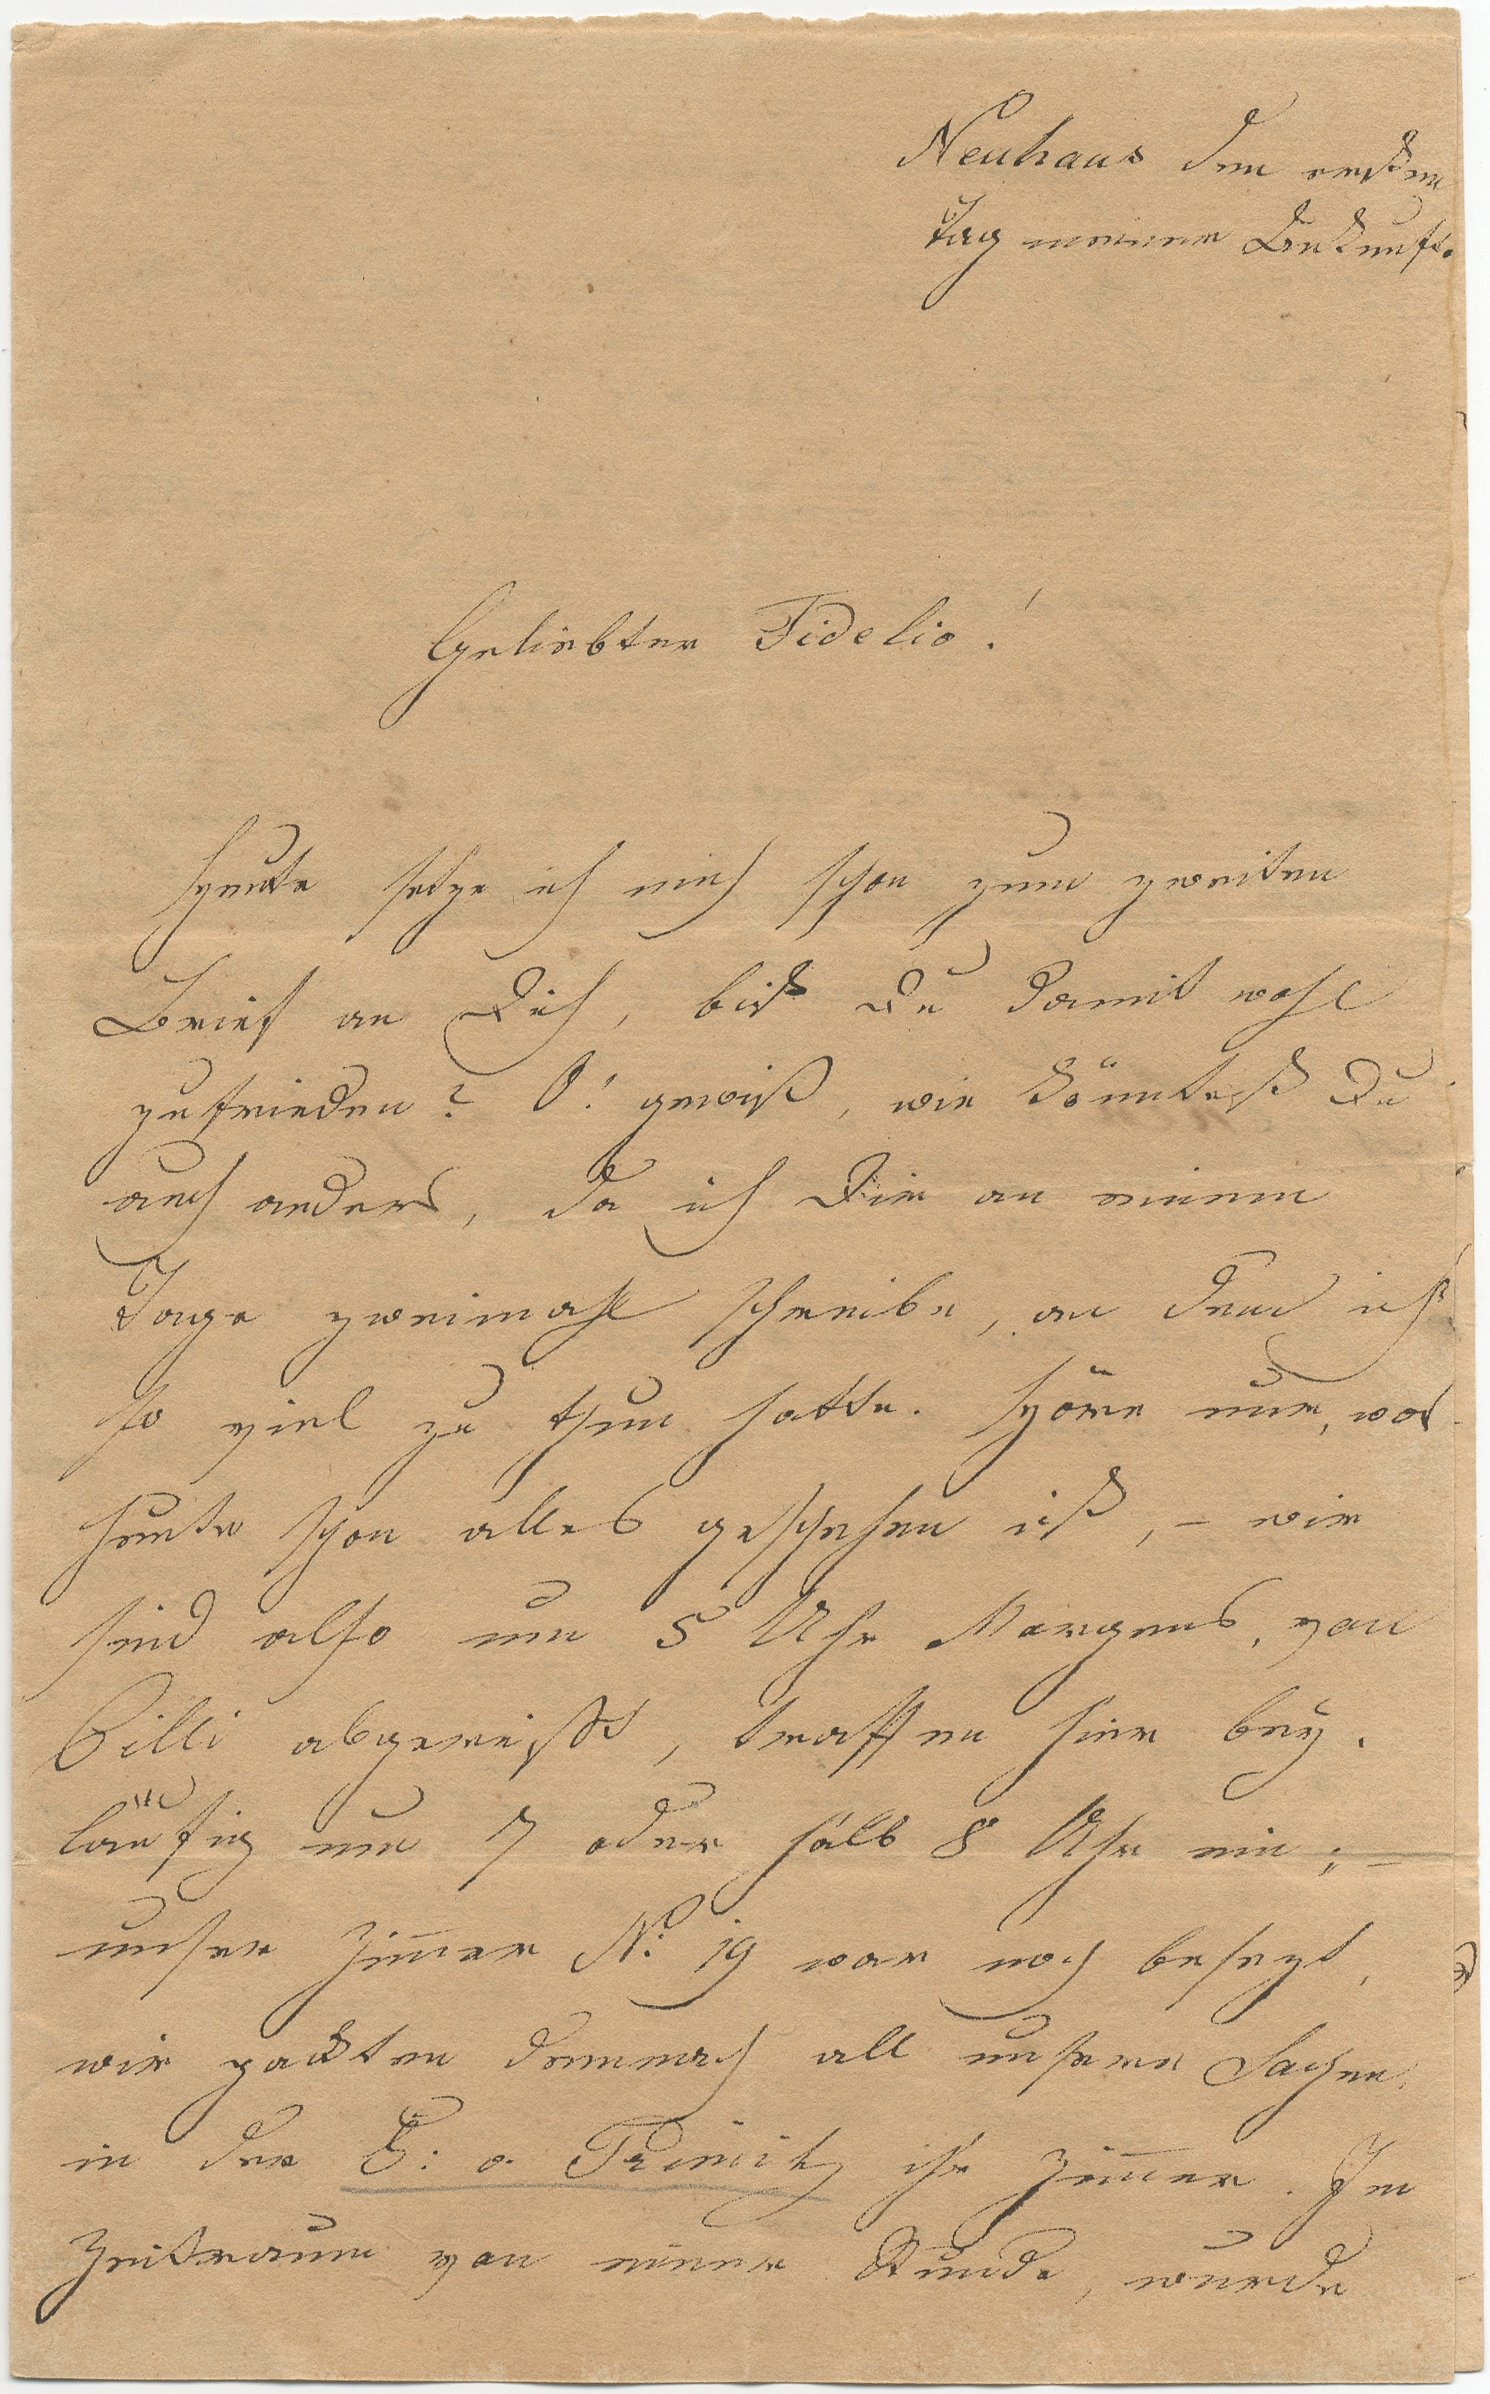 Neuhaus den ersten
Tag meiner Ankunft.
Geliebter Fidelio!
Heute setze ich mich schon zum zweiten
Brief an Dich, bist Du damit wohl
zufrieden? O! gewiß, wie könntest Du
auch anders, da ich Dir an einem
Tage zweimahl schreibe, an dem ich
so viel zu thun hatte. Höre nur, was
heute schon alles geschehen ist, – wir
sind also um 5 Uhr Morgens, von
Cilli abgereist, traffen hier bey.
läufig um 7 oder halb 8 Uhr ein; –
unser Zim̅er N: 19 war noch besezt,
wir packten demnach all unsere Sachen
in der B: v. ihr Zim̅er. Im
Zeitraum von einer Stunde, wurde